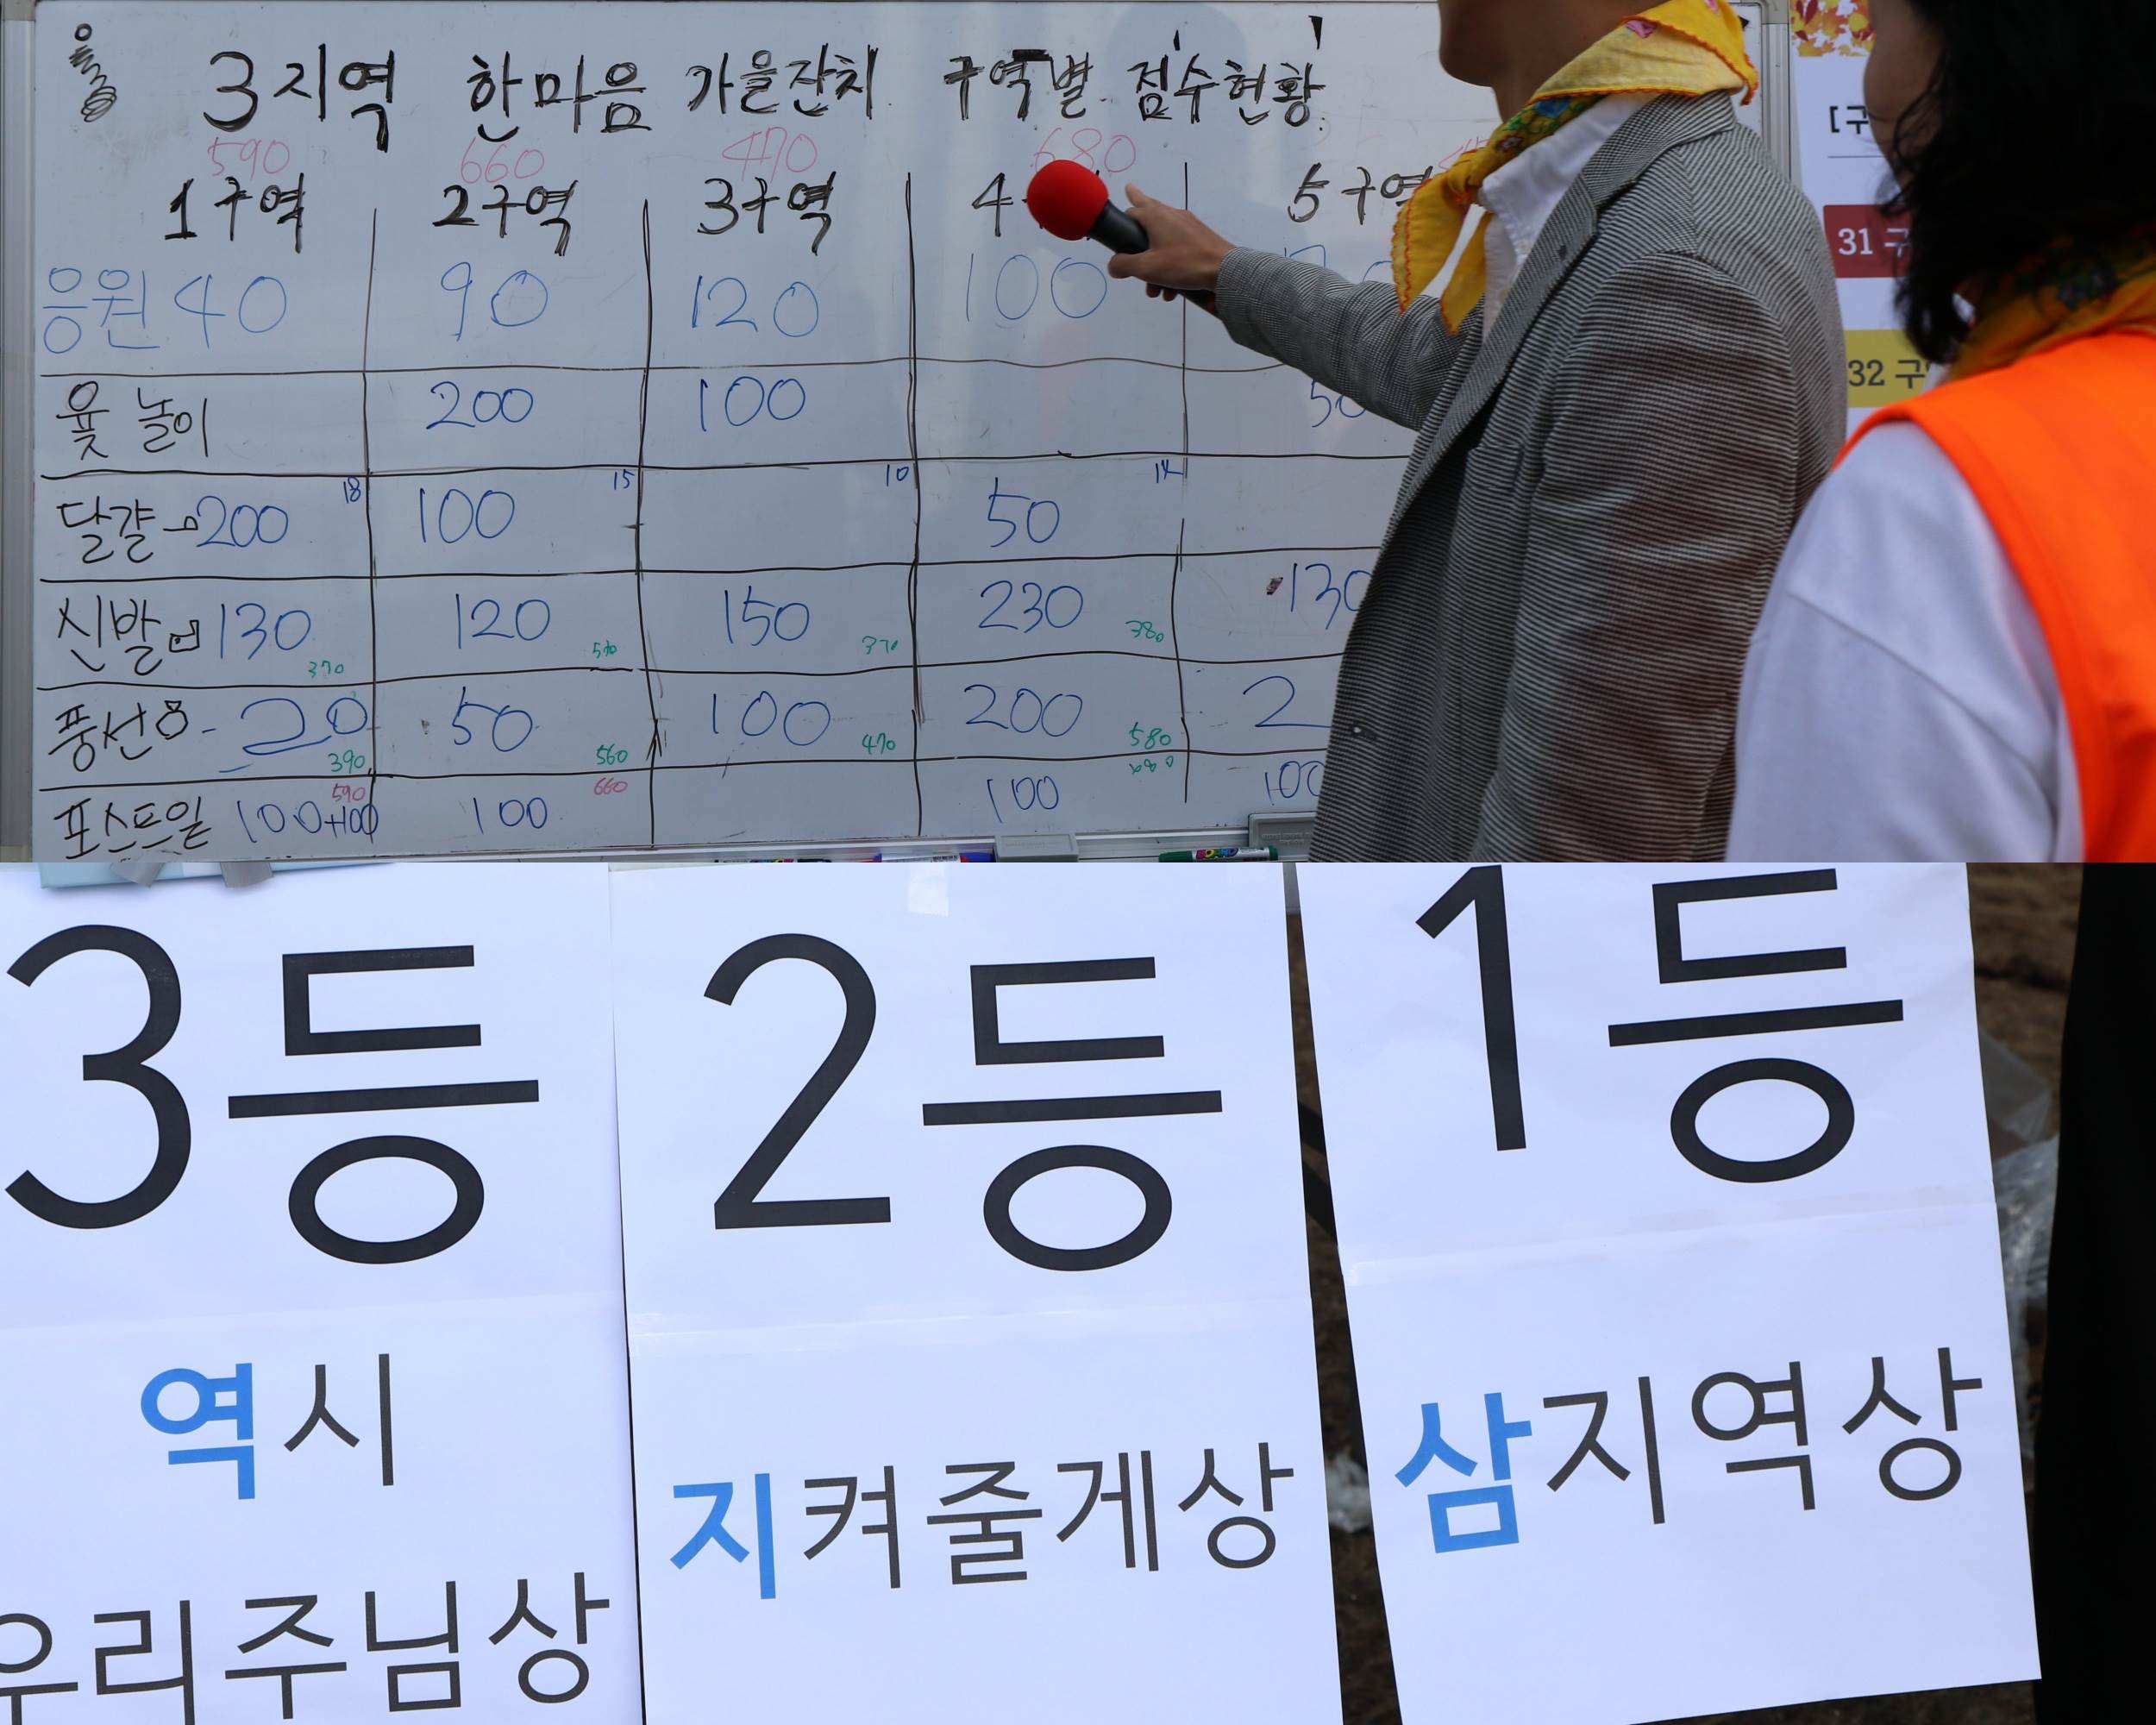 3지역 한마음 가을잔치 구역별 점수현황
590 660 470 680
1구역 2구역 3구역 4 5구역
응원 40 90 120 100
윷놀이 200 100 50
18 15 10 14
달걀 200 100 50
신발 130 120 150 230 130
370 370 380
풍선 20 50 100 200 2
390 560 470 580
590 660 680
포스트잍 100+100 100 100 100
[구
31 구
32 구
3등
역시
우리주님상
2등
지켜줄게상
1등
삼지역상